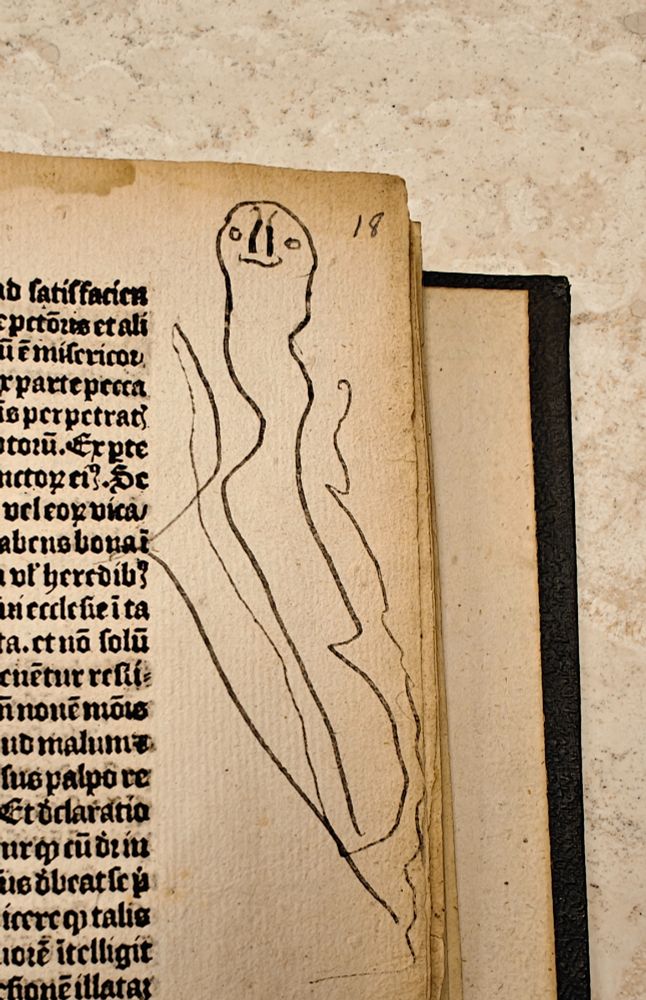 18
ad satisfacien
epctōris et ali
ū ē misericor
x parte pecca
is perpetratꝭ
ptorū. Ex pte
nctoꝝ ei⁹. Se
vel eoꝝ vica/
abens bona ī
a vl' heredib⁹
ui ecclesie ī ta
ta. et nō solū
enētur resti-
n̄ nouē mōis
ud malum
sus palpo re
Et dclaratio
tur ꝙ cū
us dbeat se
icere ꝙ talis
orē ītelligit
ctionē illatat